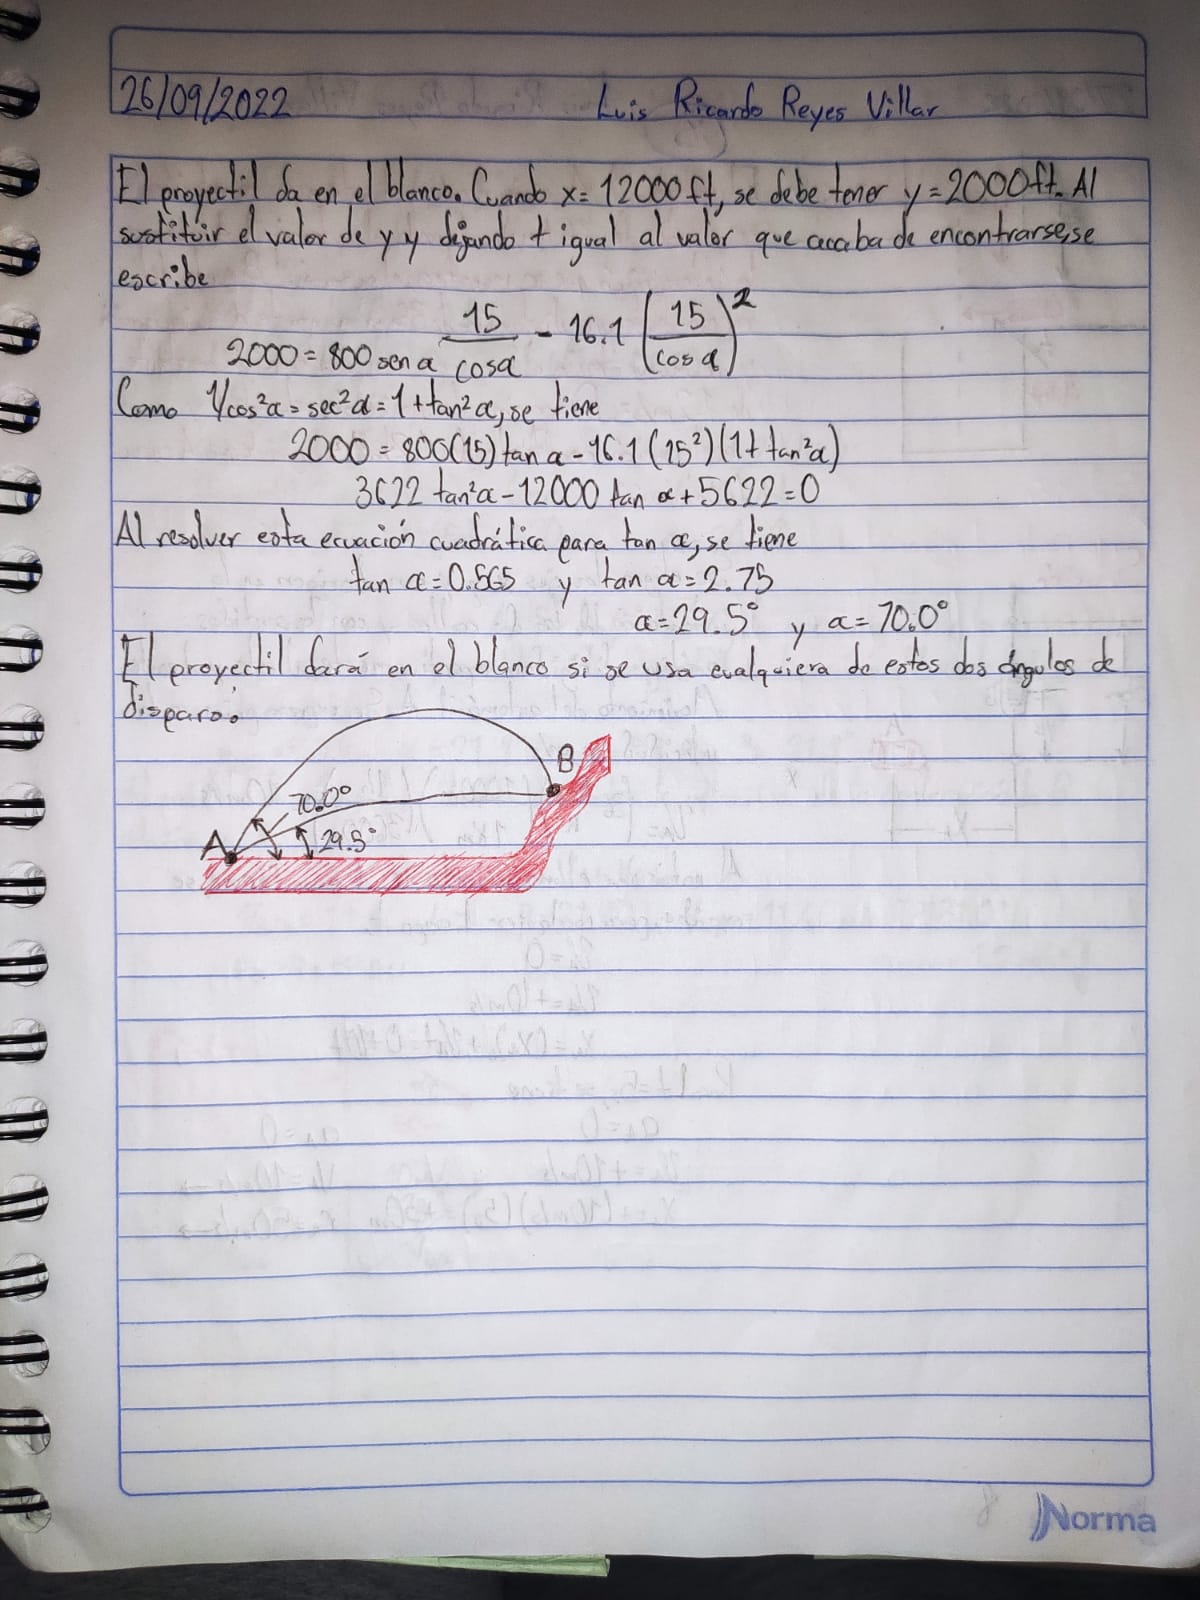 26/09/2022 Luis Ricardo Reyes Villar
El proyectil da en el blanco. Cuando x = 12000 ft, se debe tener y = 2000 ft. Al
sustituir el valor de y y dejando t igual al valor que acaba de encontrarse, se
escribe
2000 = 800 sen α 15/cos α - 16.1 (15/cos α)²
Como 1/cos²α = sec²α = 1 + tan²α, se tiene
2000 = 800(15) tan α - 16.1 (15²)(1 + tan²α)
3622 tan²α - 12000 tan α + 5622 = 0
Al resolver esta ecuación cuadrática para tan α, se tiene
tan α = 0.565 y tan α = 2.75
α = 29.5° y α = 70.0°
El proyectil dará en el blanco si se usa cualquiera de estos dos ángulos de
disparo.
B
70.0°
A 29.5°
Norma